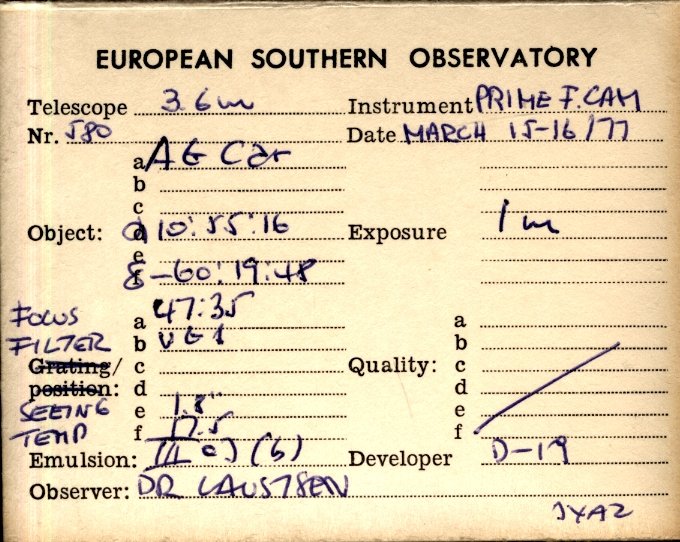 EUROPEAN SOUTHERN OBSERVATORY
Telescope 3.6m Instrument PRIME F. CAM
Nr. 580 Date MARCH 15-16/77
a AG Car
b
c
Object: d α 10:55:16 Exposure 1 m
e
f δ -60:19:48
FOCUS a 47:35 a
FILTER b b
Grating/ c Quality: c
position: d d
SEEING e 1.8" e
TEMP f 17.5 f
Emulsion: (6) Developer D-19
Observer: DR LAUSTSEN